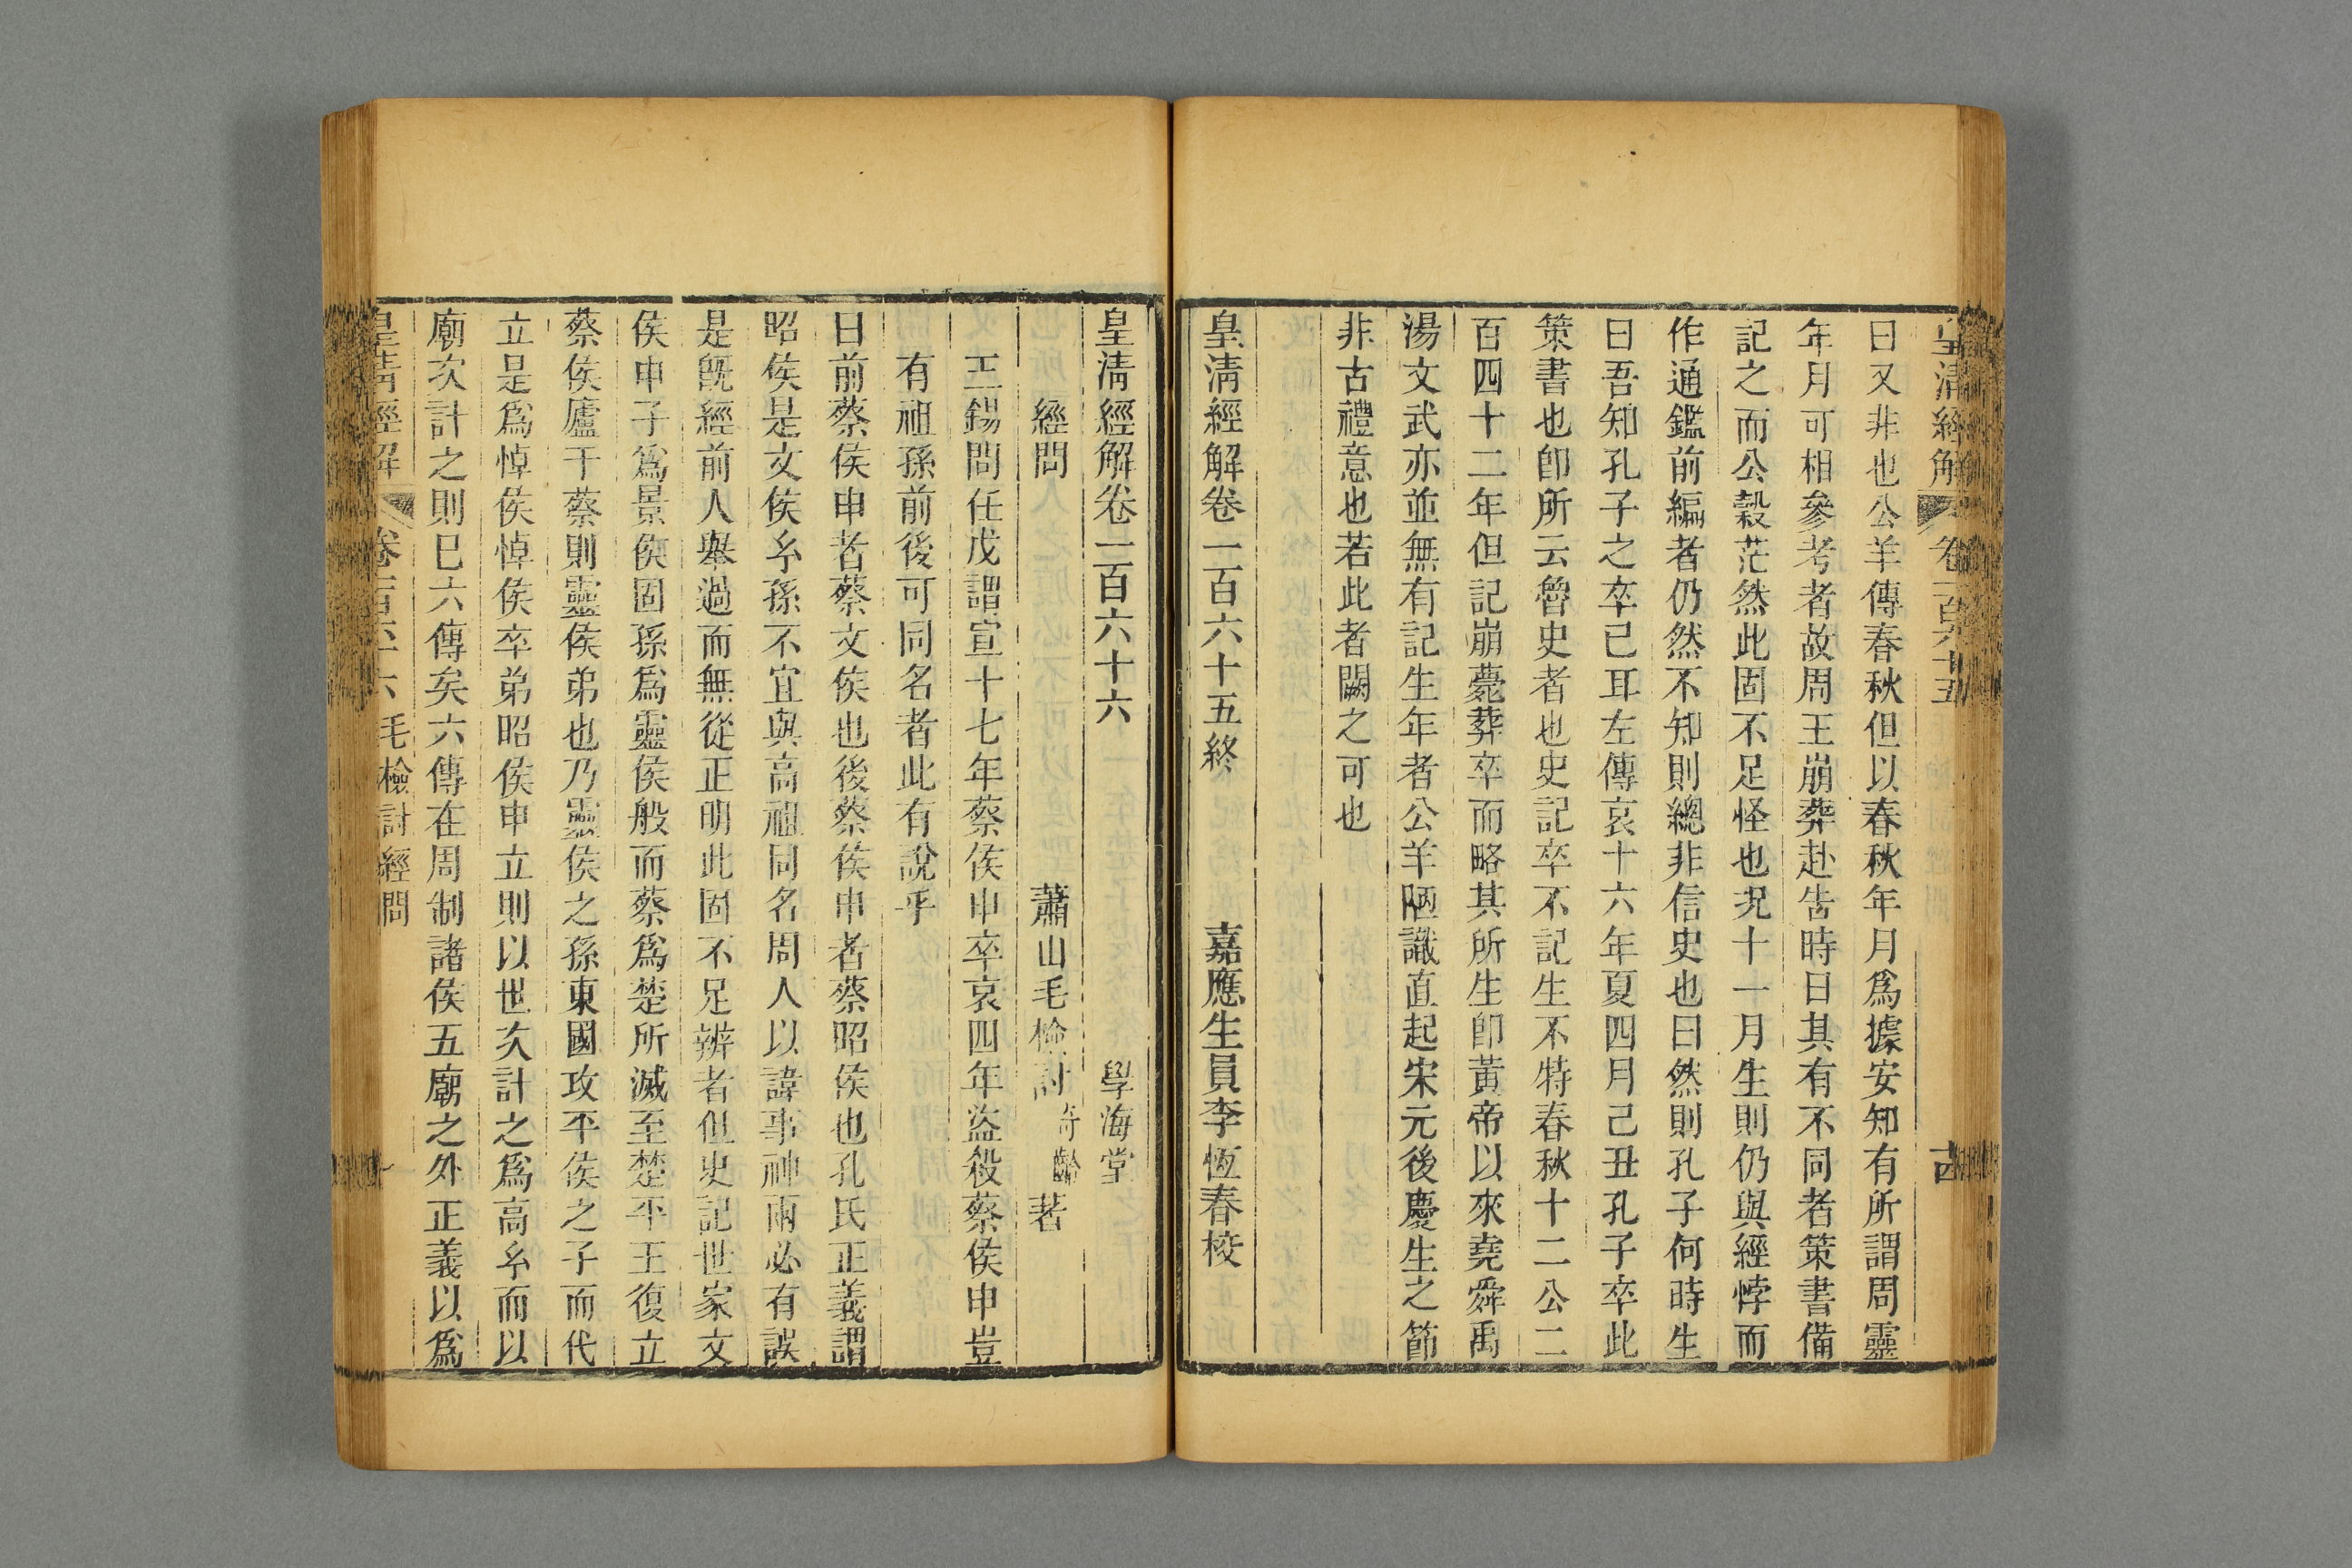 皇清經解 卷一百六十五 古
曰又非也公羊傳春秋但以春秋年月爲據安知有所謂周靈
年月可相參考者故周王崩葬赴告時日其有不同者策書備
記之而公榖茫然此固不足怪也况十一月生則仍與經悖而
作通鑑前編者仍然不知則總非信史也曰然則孔子何時生
曰吾知孔子之卒已耳左傳哀十六年夏四月己丑孔子卒此
策書也卽所云魯史者也史記卒不記生不特春秋十二公二
百四十二年但記崩薨葬卒而略其所生卽黃帝以來堯舜禹
湯文武亦並無有記生年者公羊陋識直起宋元後慶生之節
非古禮意也若此者闕之可也
皇清經解卷一百六十五終 嘉應生員李恆春校
皇清經解卷一百六十六 學海堂
經問 蕭山毛檢討奇齡著
王錫問任戊謂宣十七年蔡侯申卒哀四年盜殺蔡侯申豈
有祖孫前後可同名者此有說乎
曰前蔡侯申者蔡文侯也後蔡侯申者蔡昭侯也孔氏正義謂
昭侯是文侯玄孫不宜與高祖同名周人以諱事神兩必有誤
是旣經前人舉過而無從正明此固不足辨者但史記世家文
侯申子爲景侯固孫爲靈侯般而蔡爲楚所滅至楚平王復立
蔡侯廬于蔡則靈侯弟也乃靈侯之孫東國攻平侯之子而代
立是爲悼侯悼侯卒弟昭侯申立則以世次計之爲高玄而以
廟次計之則已六傳矣六傳在周制諸侯五廟之外正義以爲
皇清經解 卷一百六十六 毛檢討經問 一